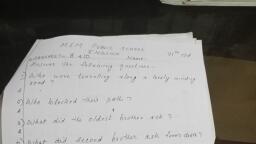 M.E.M PUBLIC SCHOOL
ENGLISH
WORKSHEET
Name:
Answer the following questions.
1) Who were travelling along a lonely winding
road?
2) Who blocked their path?
3) What did the eldest brother ask?
What did second brother ask from death?